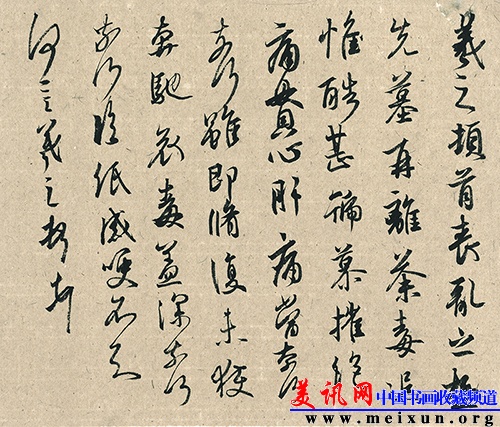 羲之頓首喪亂之極
先墓再離荼毒追
惟酷甚號慕摧絕
痛貫心肝痛當奈何
奈何雖即脩復未獲
奔馳哀毒益深奈何
奈何臨紙感哽不知
何言羲之頓首頓首
美讯网 中国书画收藏频道
www.meixun.org